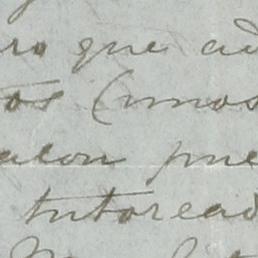 ro que ad
os (unos
alon pue
tutoread